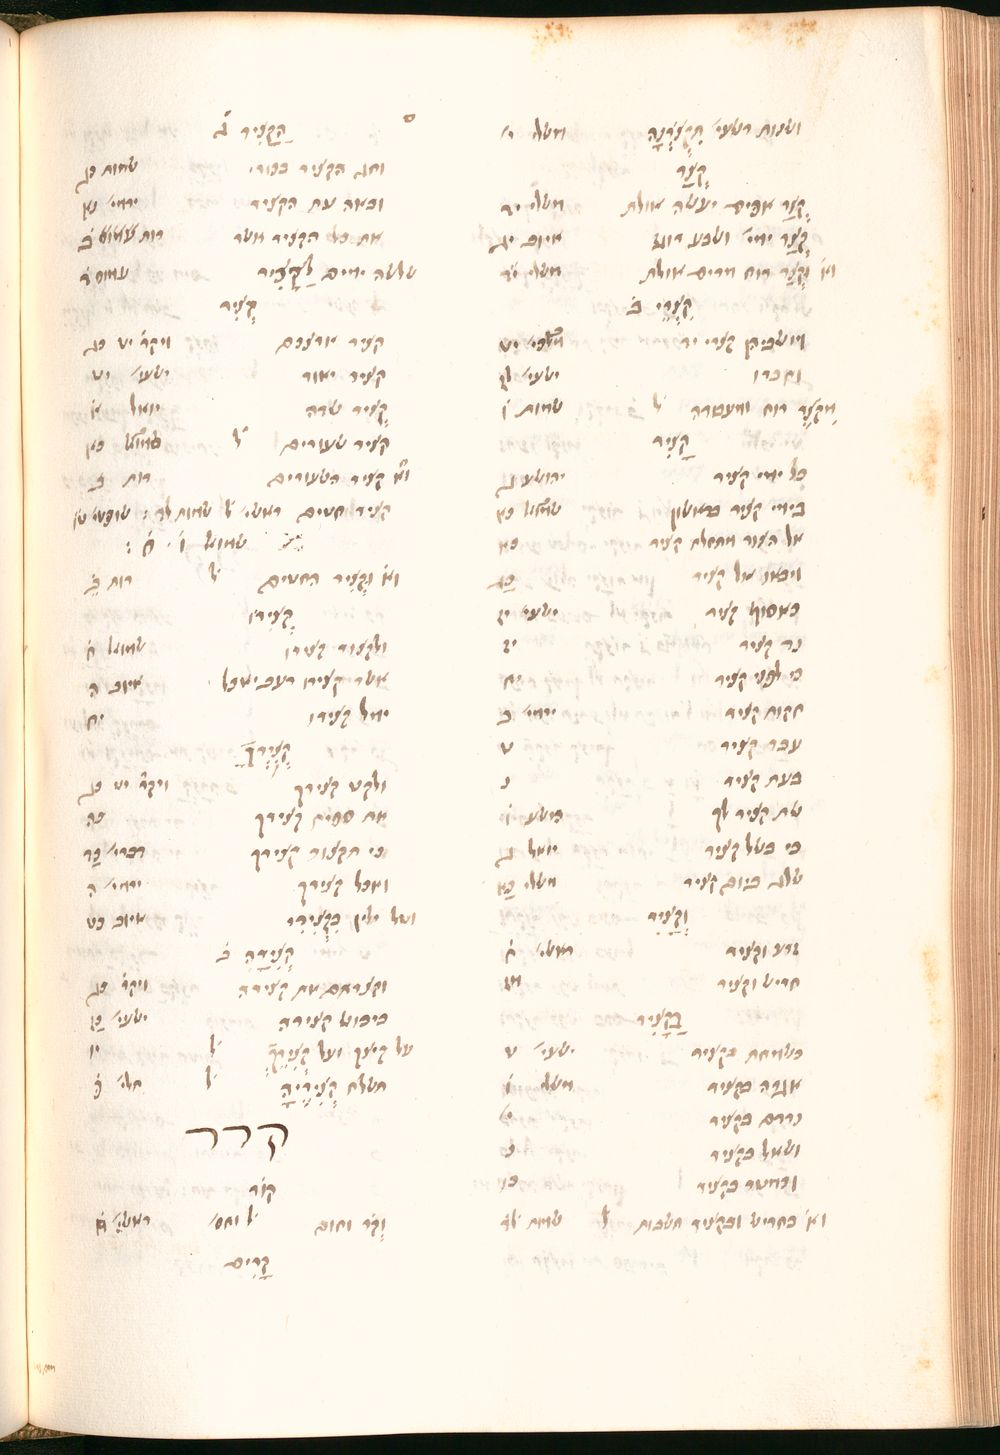 ושנות רשעי׳ תִּקְצֹרְנָה משלי י׳
קְצַר
קְצַר אפים יעשה אולת משלי יד
קְצַר ימי׳ ושבע רוגז איוב יד
וא׳ וקְצַר רוח מרים אולת משלי יד
קִצְרֵי ב׳
ויושביהן קצרי יד
וחברו ישעי׳ לז
מִקֹּצֶר רוח ומעבודה ל׳ שמות ו׳
קָצִיר
כל ימי קציר יהושע ג
בימי קציר בראשון כא
אל הצור מתחלת קציר כא
ויבאו אל קציר כג
כאסוף קציר ישעי׳ יז
נד קציר יז
כי לפני קציר יח
חקות קציר ירמי׳ ב
עבר קציר ט
בעת קציר נ
שת קציר לך הושע ו׳
כי בשל קציר יואל ג
שלג ביום קציר משלי כא
וְקָצִיר
זרע וקציר ח׳
חריש וקציר
בַּקָּצִיר
כשמחת בקציר ישעי׳ ט
אגרה בקציר משלי ו׳
נרדם בקציר י׳
ושאל בקציר כ׳
ובמטר בקציר כו
וא׳ בחריש ובקציר תשבות ל׳ שמות לד
הַקָּצִיר ג׳
וחג הקציר בכורי שמות כג
ובאה עת הקציר ירמי׳ נא
את כל הקציר אשר רות ב׳
שלשה חדשים לַקָּצִיר עמוס ד׳
קְצִיר
קציר ארצכם ויקר׳ יט כג
קציר יאור ישעי׳
קְציר שדה יואל א׳
קציר שעורים ל׳ כא
וא׳ קציר השעורים רות ב
קציר חטים ראשי׳ ל׳ שמות לד׃ שופטי׳ טו
שמואל ו׳ ח׃
וא׳ וּקְצִיר החטים ל׳ רות ב׳
קְצִירוֹ
ולקצור קצירו שמואל ח׳
אשר קצירו רעב יאכל איוב ה
ימל קצירו יח
קְצִירְךָ
ולקט קצירך ויקר׳ יט כג
את ספיח קצירך כה
כי תקצור קצירך דברי׳ כד
ואכל קצירך ירמי׳ ה
וטל ילין בִּקְצִירִי איוב כט
קְצִירָהּ ב׳
וקצרתם את קצירה ויקר׳ כג
ביבוש קצירה ישעי׳ כז
על קיצך ועל קְצִירֵךְ ל׳ יו
תשלח קְצִירֶיהָ ל׳ תלי׳ פ׳
קרר
קוֹר
וְקֹר וחום ל׳ וחס׳ ראשי׳ ח׳
קָרִים